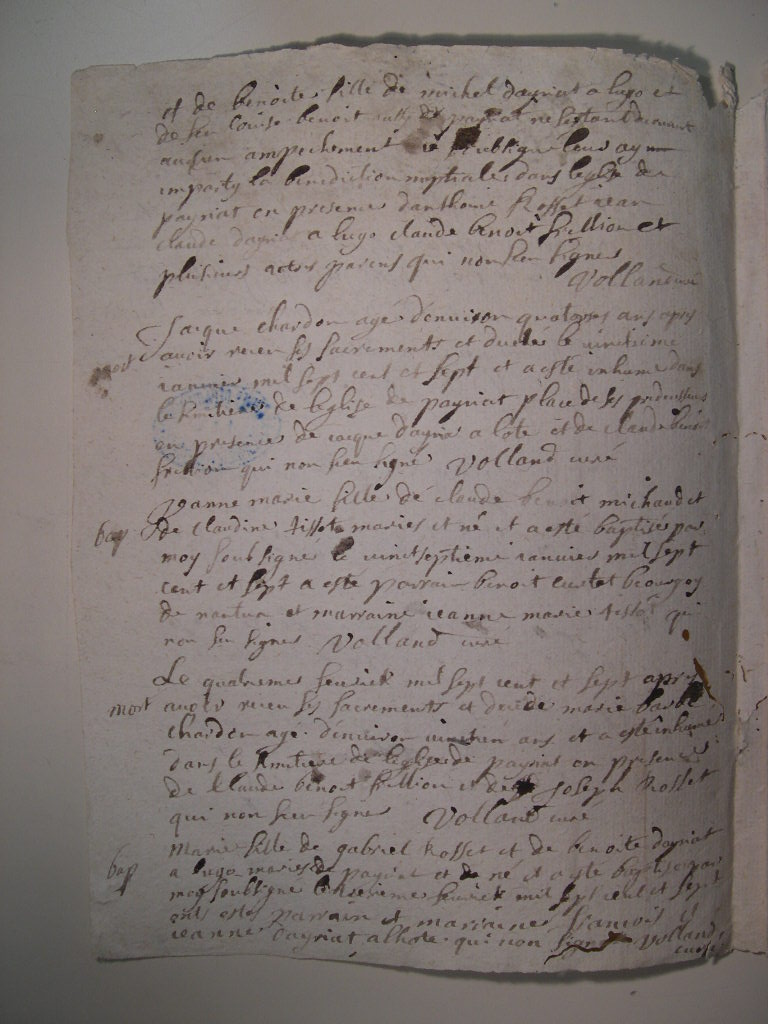 et de benoite fille de michel dayriat a lugo et
de feu Louise benoit de payriat ne sestant decouvert
aucun ampechement ie soubsigne leur ay
imparty la benediction nuptiale dans leglise de
payriat en presence danthoine Rosset jean
claude dayriat a lugo claude benoit frillion et
plusieurs actes parens qui non sceu signes
Volland curé
Jacque chardon age denuiron quatorzes ans apres
mort avoir receu ses sacrements et decede le vinctieme
ianuier mil sept cent et sept et a este inhume dans
le simitiere de leglise de payriat place de ses predecesseurs
en presence de iacque dayria a lote et de claude benoit
frillion qui non sceu signe Volland curé
Joanne marie fille de claude benoit michaud et
bap de claudine tissot maries et né et a este baptisé par
moy soubsigne le vinctseptieme ianuier mil sept
cent et sept a este parrain benoit curtet bourgoy
de nantua et marraine ieanne marie tissot qui
non sceu signes Volland curé
Le quatrieme feurier mil sept cent et sept apres
mort avoir receu ses sacrements et decede marie barbe
chardon age denuiron vinctun ans et a este inhume
dans le simitiere de leglise de payriat en presence
de Claude benoit frillion et de Joseph Rosset
qui non sceu signes Volland curé
Marie fille de gabriel Rosset et de benoite dayriat
bap a lugo maries de payriat et de né et a este baptise par
moy soubsigne le feurier mil sept cent et sept
ont estes parrain et marraine francois et
ieanne dayriat a lhote qui non signe Volland
curé